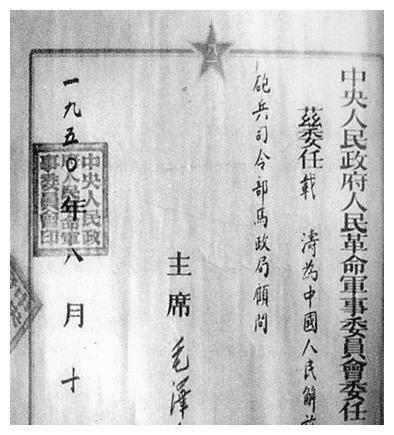 中央人民政府人民革命軍事委員會委任
茲委任載 濤為中國人民解
砲兵司令部馬政局顧問
八一
主席 毛澤
一九五〇年八月十
中央人民政
府人民革命軍
事委員會印